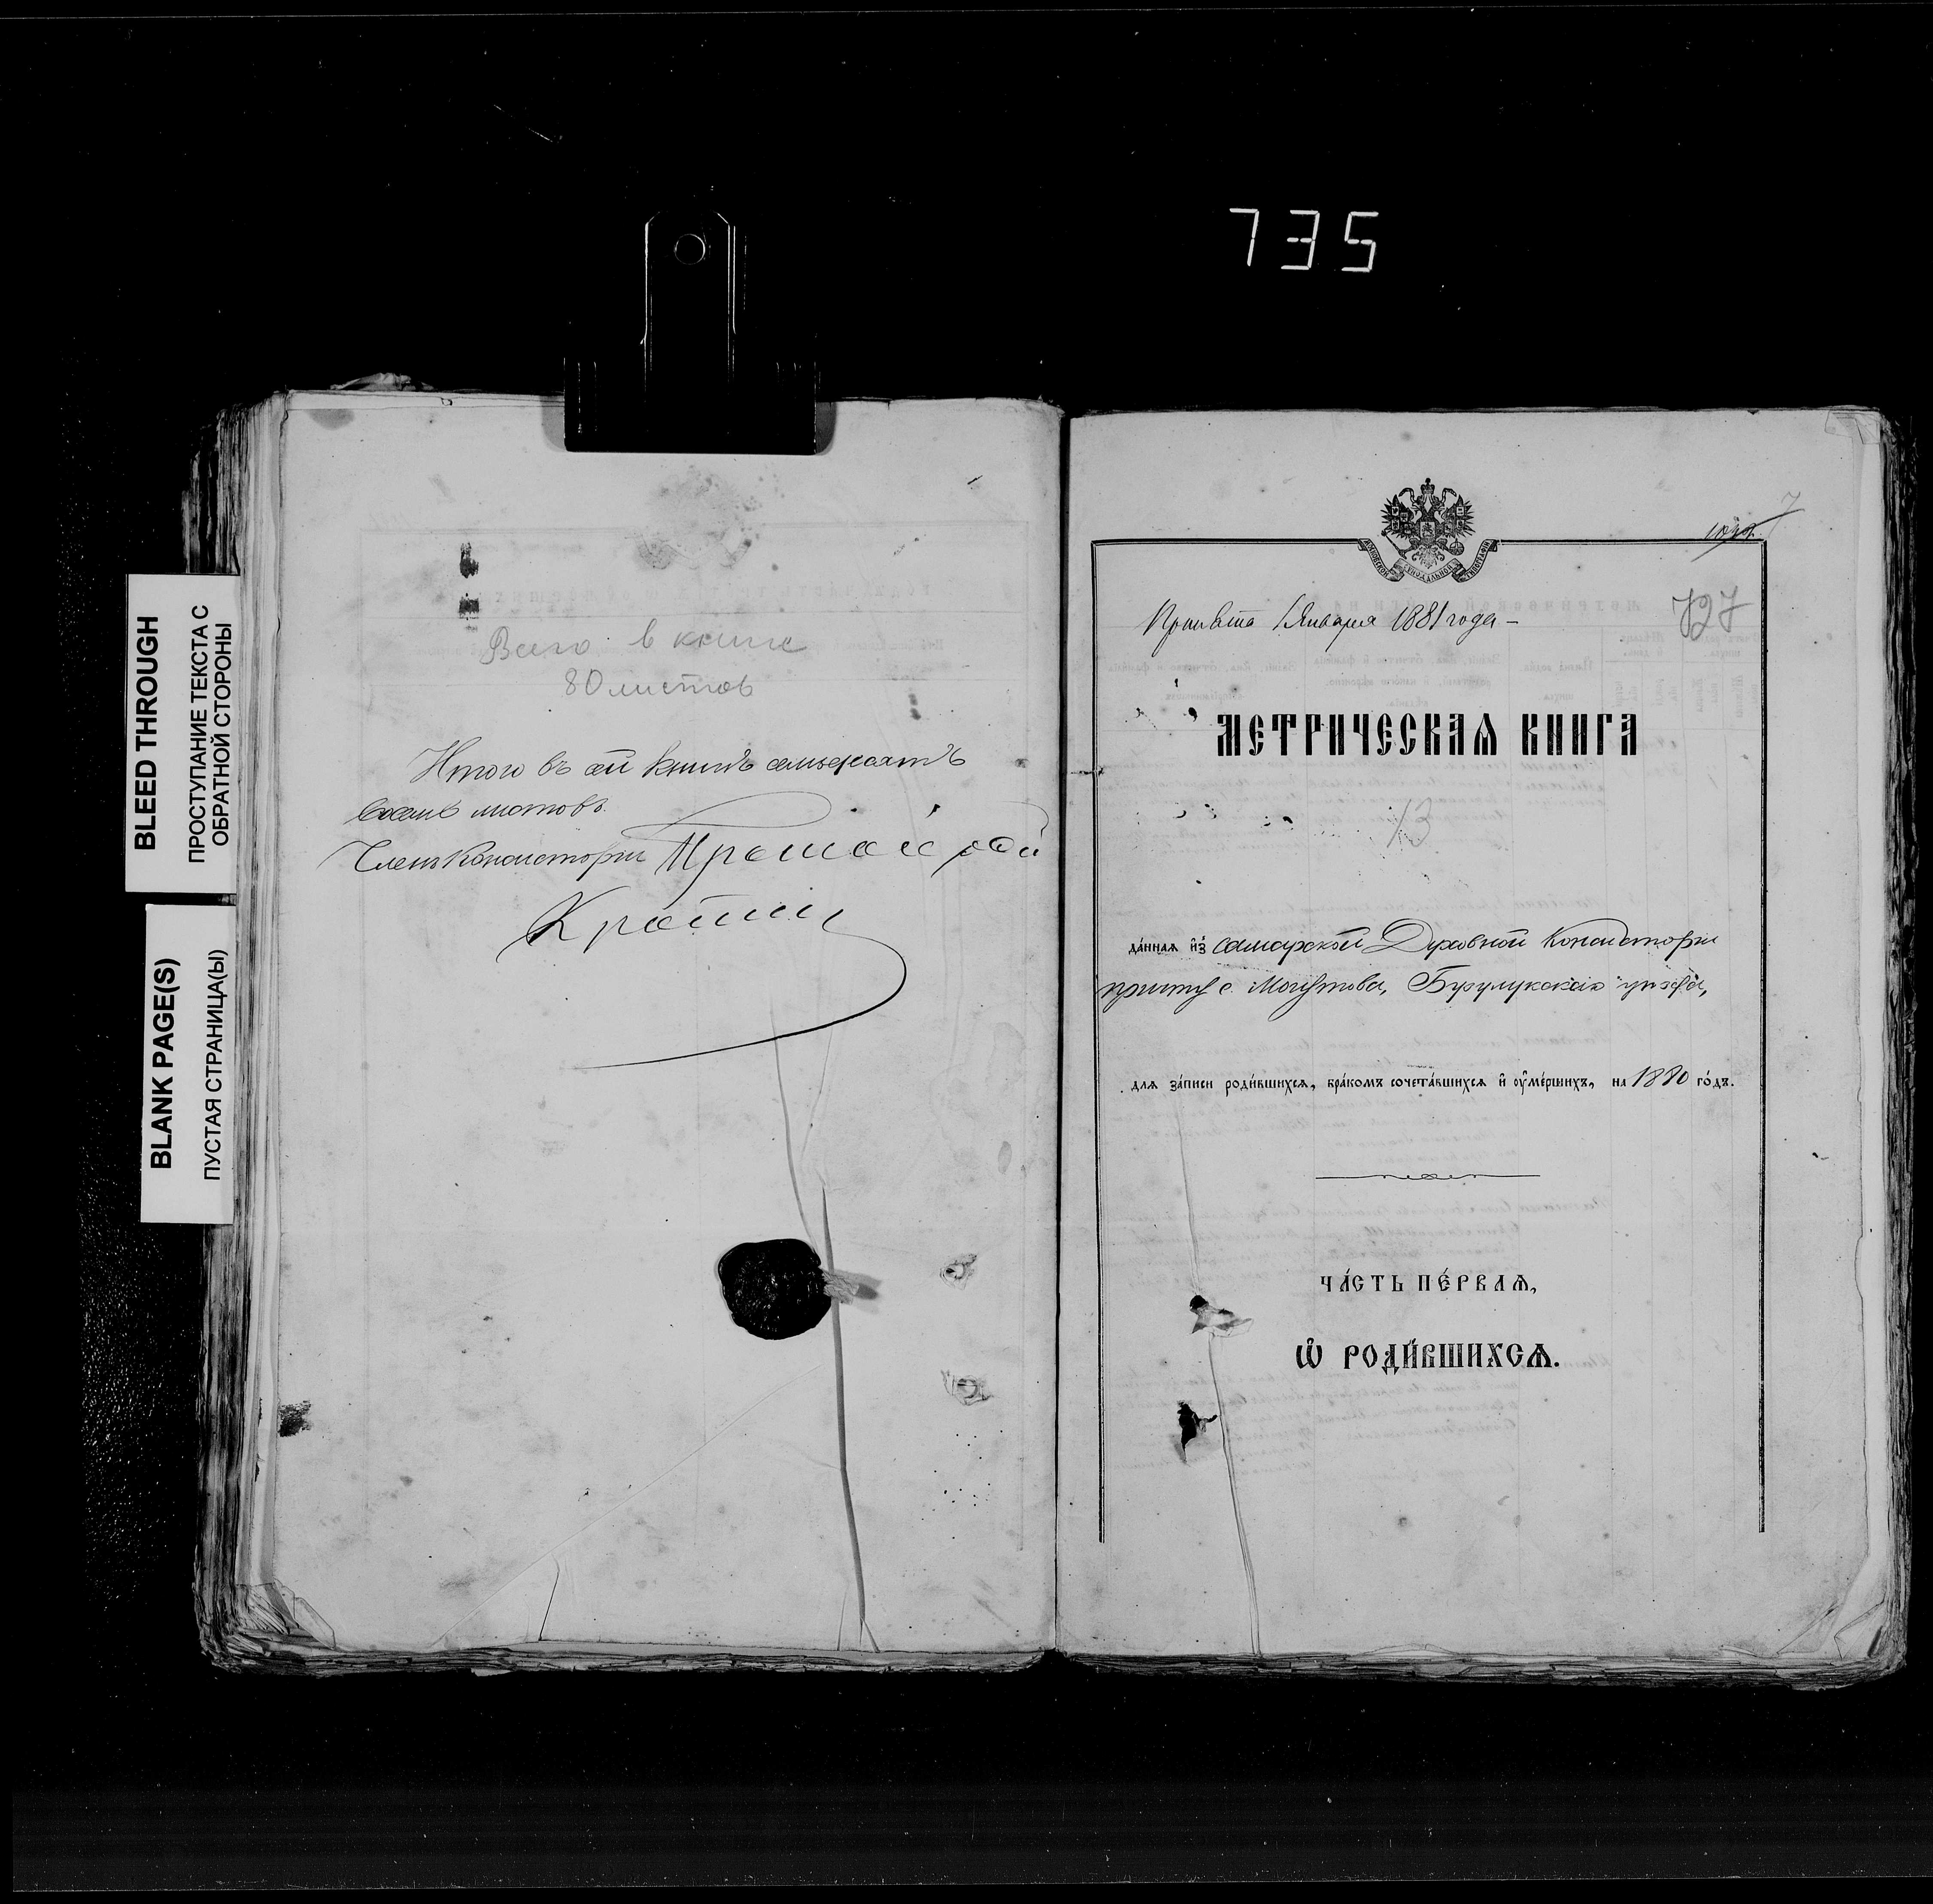 735
BLEED THROUGH
ПРОСТУПАНИЕ ТЕКСТА С
ОБРАТНОЙ СТОРОНЫ
BLANK PAGE(S)
ПУСТАЯ СТРАНИЦА(Ы)
Всего в книге
80 листов
Итого въ сей книгѣ семьдесятъ
восемь листовъ.
Членъ Консисторіи Протоіерей
7
МОСКОВСКОЙ СѴНОДАЛЬНОЙ ТИПОГРАФІИ
727
Января 1881 года –
МЕТРИЧЕСКАѦ КНИГА
13
да́ннаѧ и҆з̾ Самарской Духовной Консисторіи
причту с. Могутова, Бузулукскаго уѣзда,
для за́писи роди́вшихсѧ, бра́комъ сочета́вшихсѧ и҆ ᲂу҆ме́ршихъ, на 1880 го́дъ.
ЧА́СТЬ ПЕ́РВАѦ,
Ѡ҆ РОДИ́ВШИХСѦ.